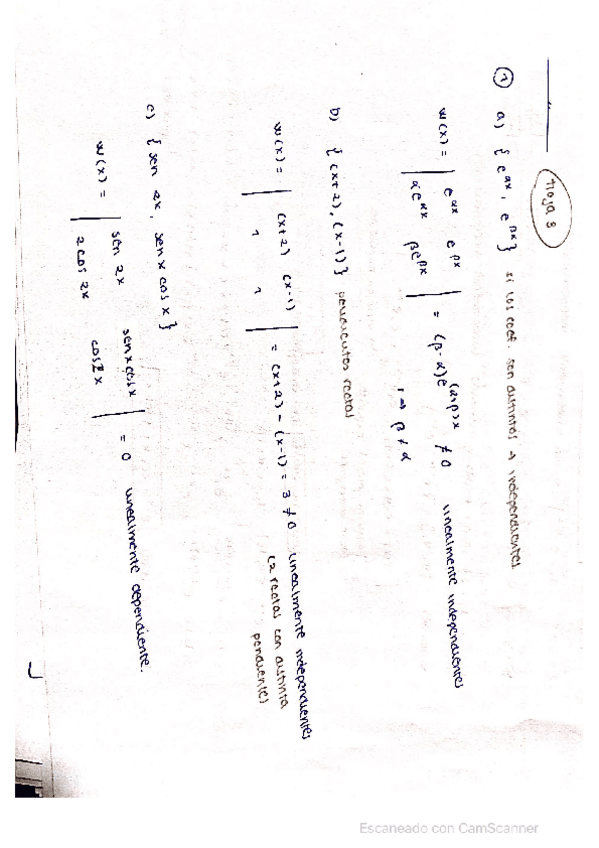 Hoja 8
① a) { e^αx, e^βx } si los coef. son distintos → independientes
W(x) = | e^αx e^βx | = (β-α)e^(α+β)x ≠ 0 linealmente independientes
| αe^αx βe^βx | → β ≠ α
b) { (x+2), (x-1) } rectas
W(x) = | (x+2) (x-1) | = (x+2) - (x-1) = 3 ≠ 0 linealmente independientes
| 1 1 | (2 rectas con distinta
pendiente)
c) { sen 2x, sen x cos x }
W(x) = | sen 2x sen x cos x | = 0 linealmente dependiente.
| 2 cos 2x cos 2x |
Escaneado con CamScanner